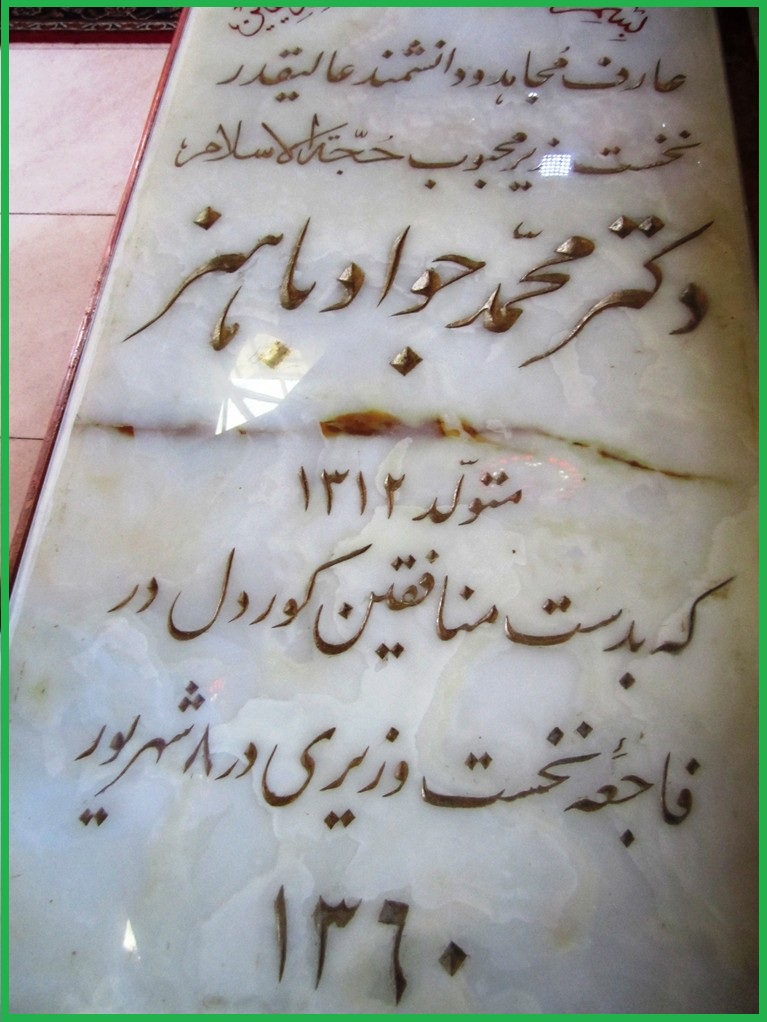 عارف مُجاهد و دانشمند عالیقدر
نخست وزیر محبوب حُجّة الاسلام
دکتر محمّد جواد باهنر
متولّد ۱۳۱۲
که بدست منافقین کوردل در
فاجعۀ نخست وزیری در ۸ شهریور
۱۳۶۰